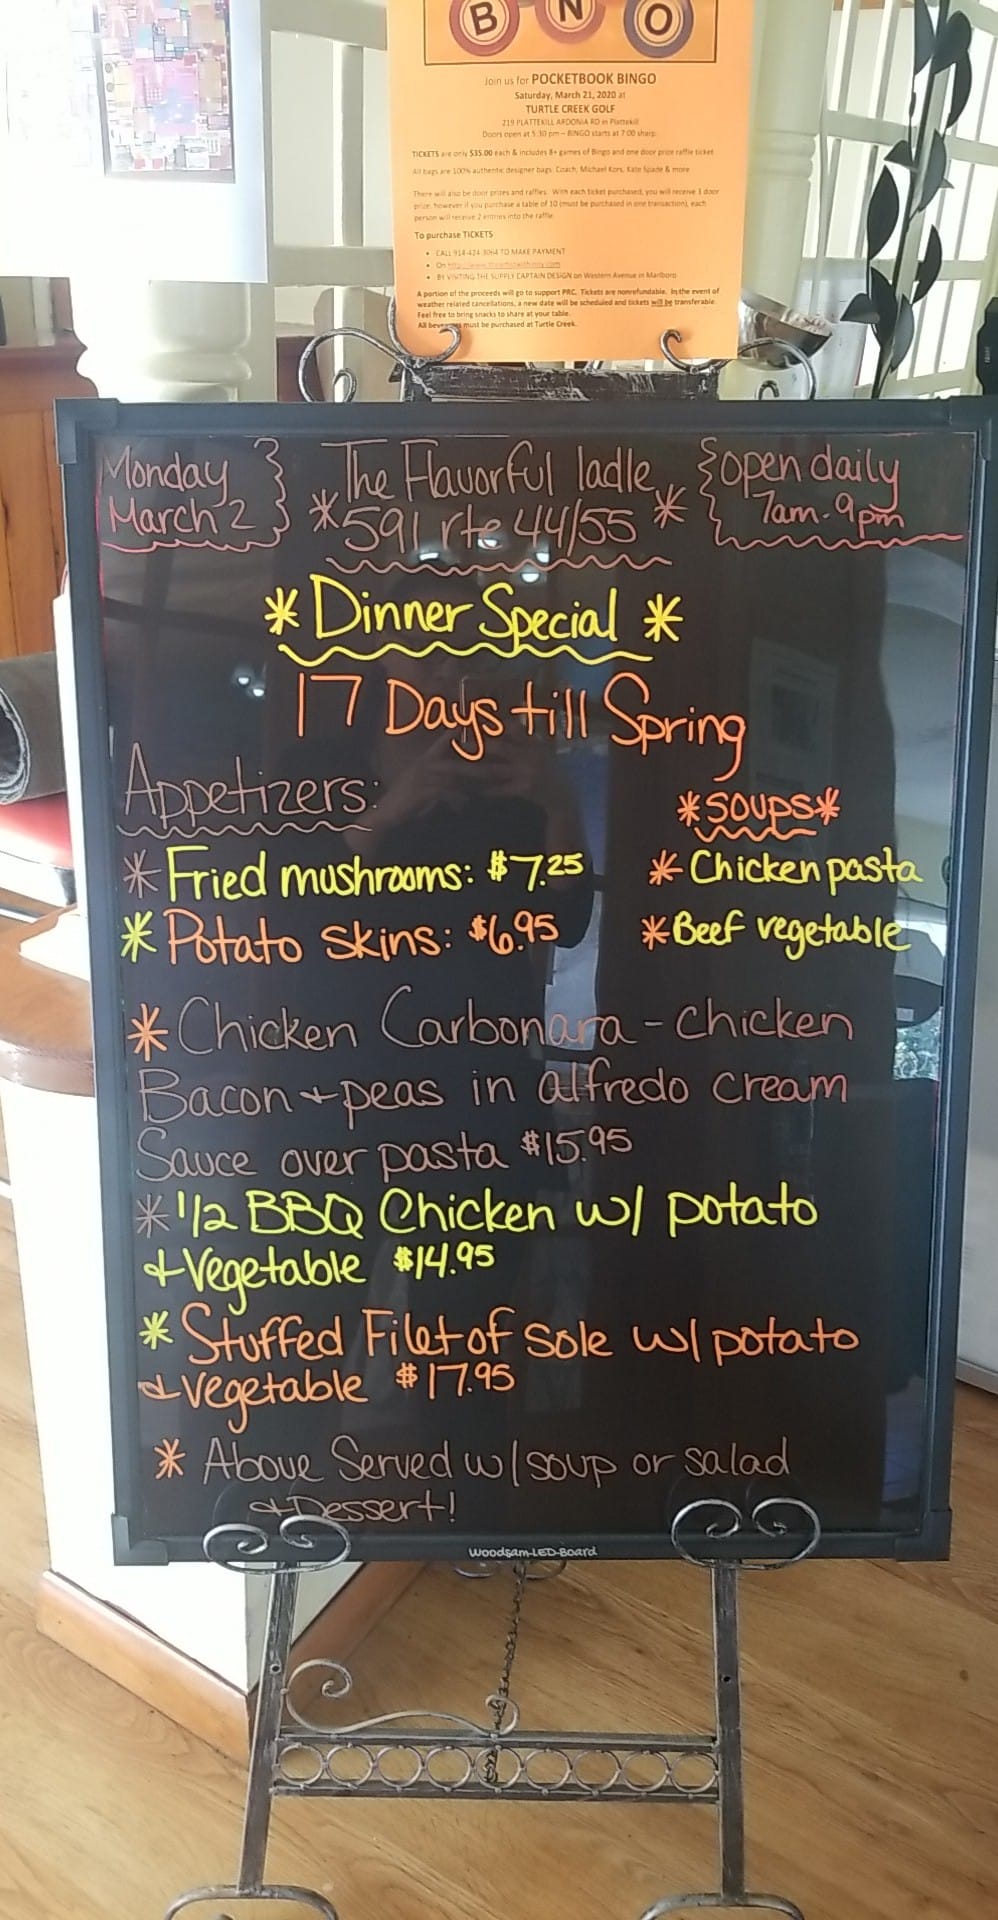 B N O
Join us for POCKETBOOK BINGO
Saturday, March 21, 2020 at
TURTLE CREEK GOLF
219 PLATTEKILL ARDONIA RD in Plattekill
Doors open at 5:30 pm – BINGO starts at 7:00 sharp.
TICKETS are only $35.00 each & includes 8+ games of Bingo and one door prize raffle ticket
All bags are 100% authentic designer bags: Coach, Michael Kors, Kate Spade & more
There will also be door prizes and raffles. With each ticket purchased, you will receive 1 door
prize; however if you purchase a table of 10 (must be purchased in one transaction), each
person will receive 2 entries into the raffle.
To purchase TICKETS
• CALL 914-424-3064 TO MAKE PAYMENT
• On
• BY VISITING THE SUPPLY CAPTAIN DESIGN on Western Avenue in Marlboro
A portion of the proceeds will go to support PRC. Tickets are nonrefundable. In the event of
weather related cancellations, a new date will be scheduled and tickets will be transferable.
Feel free to bring snacks to share at your table.
All must be purchased at Turtle Creek.
Monday
March 2
The Flavorful ladle
*591 rte 44/55 *
open daily
7am-9pm
* Dinner Special *
17 Days till Spring
Appetizers:
* Fried mushrooms: $7.25
* Potato skins: $6.95
*soups*
* Chicken pasta
* Beef vegetable
* Chicken Carbonara - chicken
Bacon + peas in alfredo cream
Sauce over pasta $15.95
* 1/2 BBQ Chicken w/ potato
+ Vegetable $14.95
* Stuffed Filet of sole w/ potato
+ vegetable $17.95
* Above Served w/ soup or salad
+ Dessert!
Woodsam-LED-Board